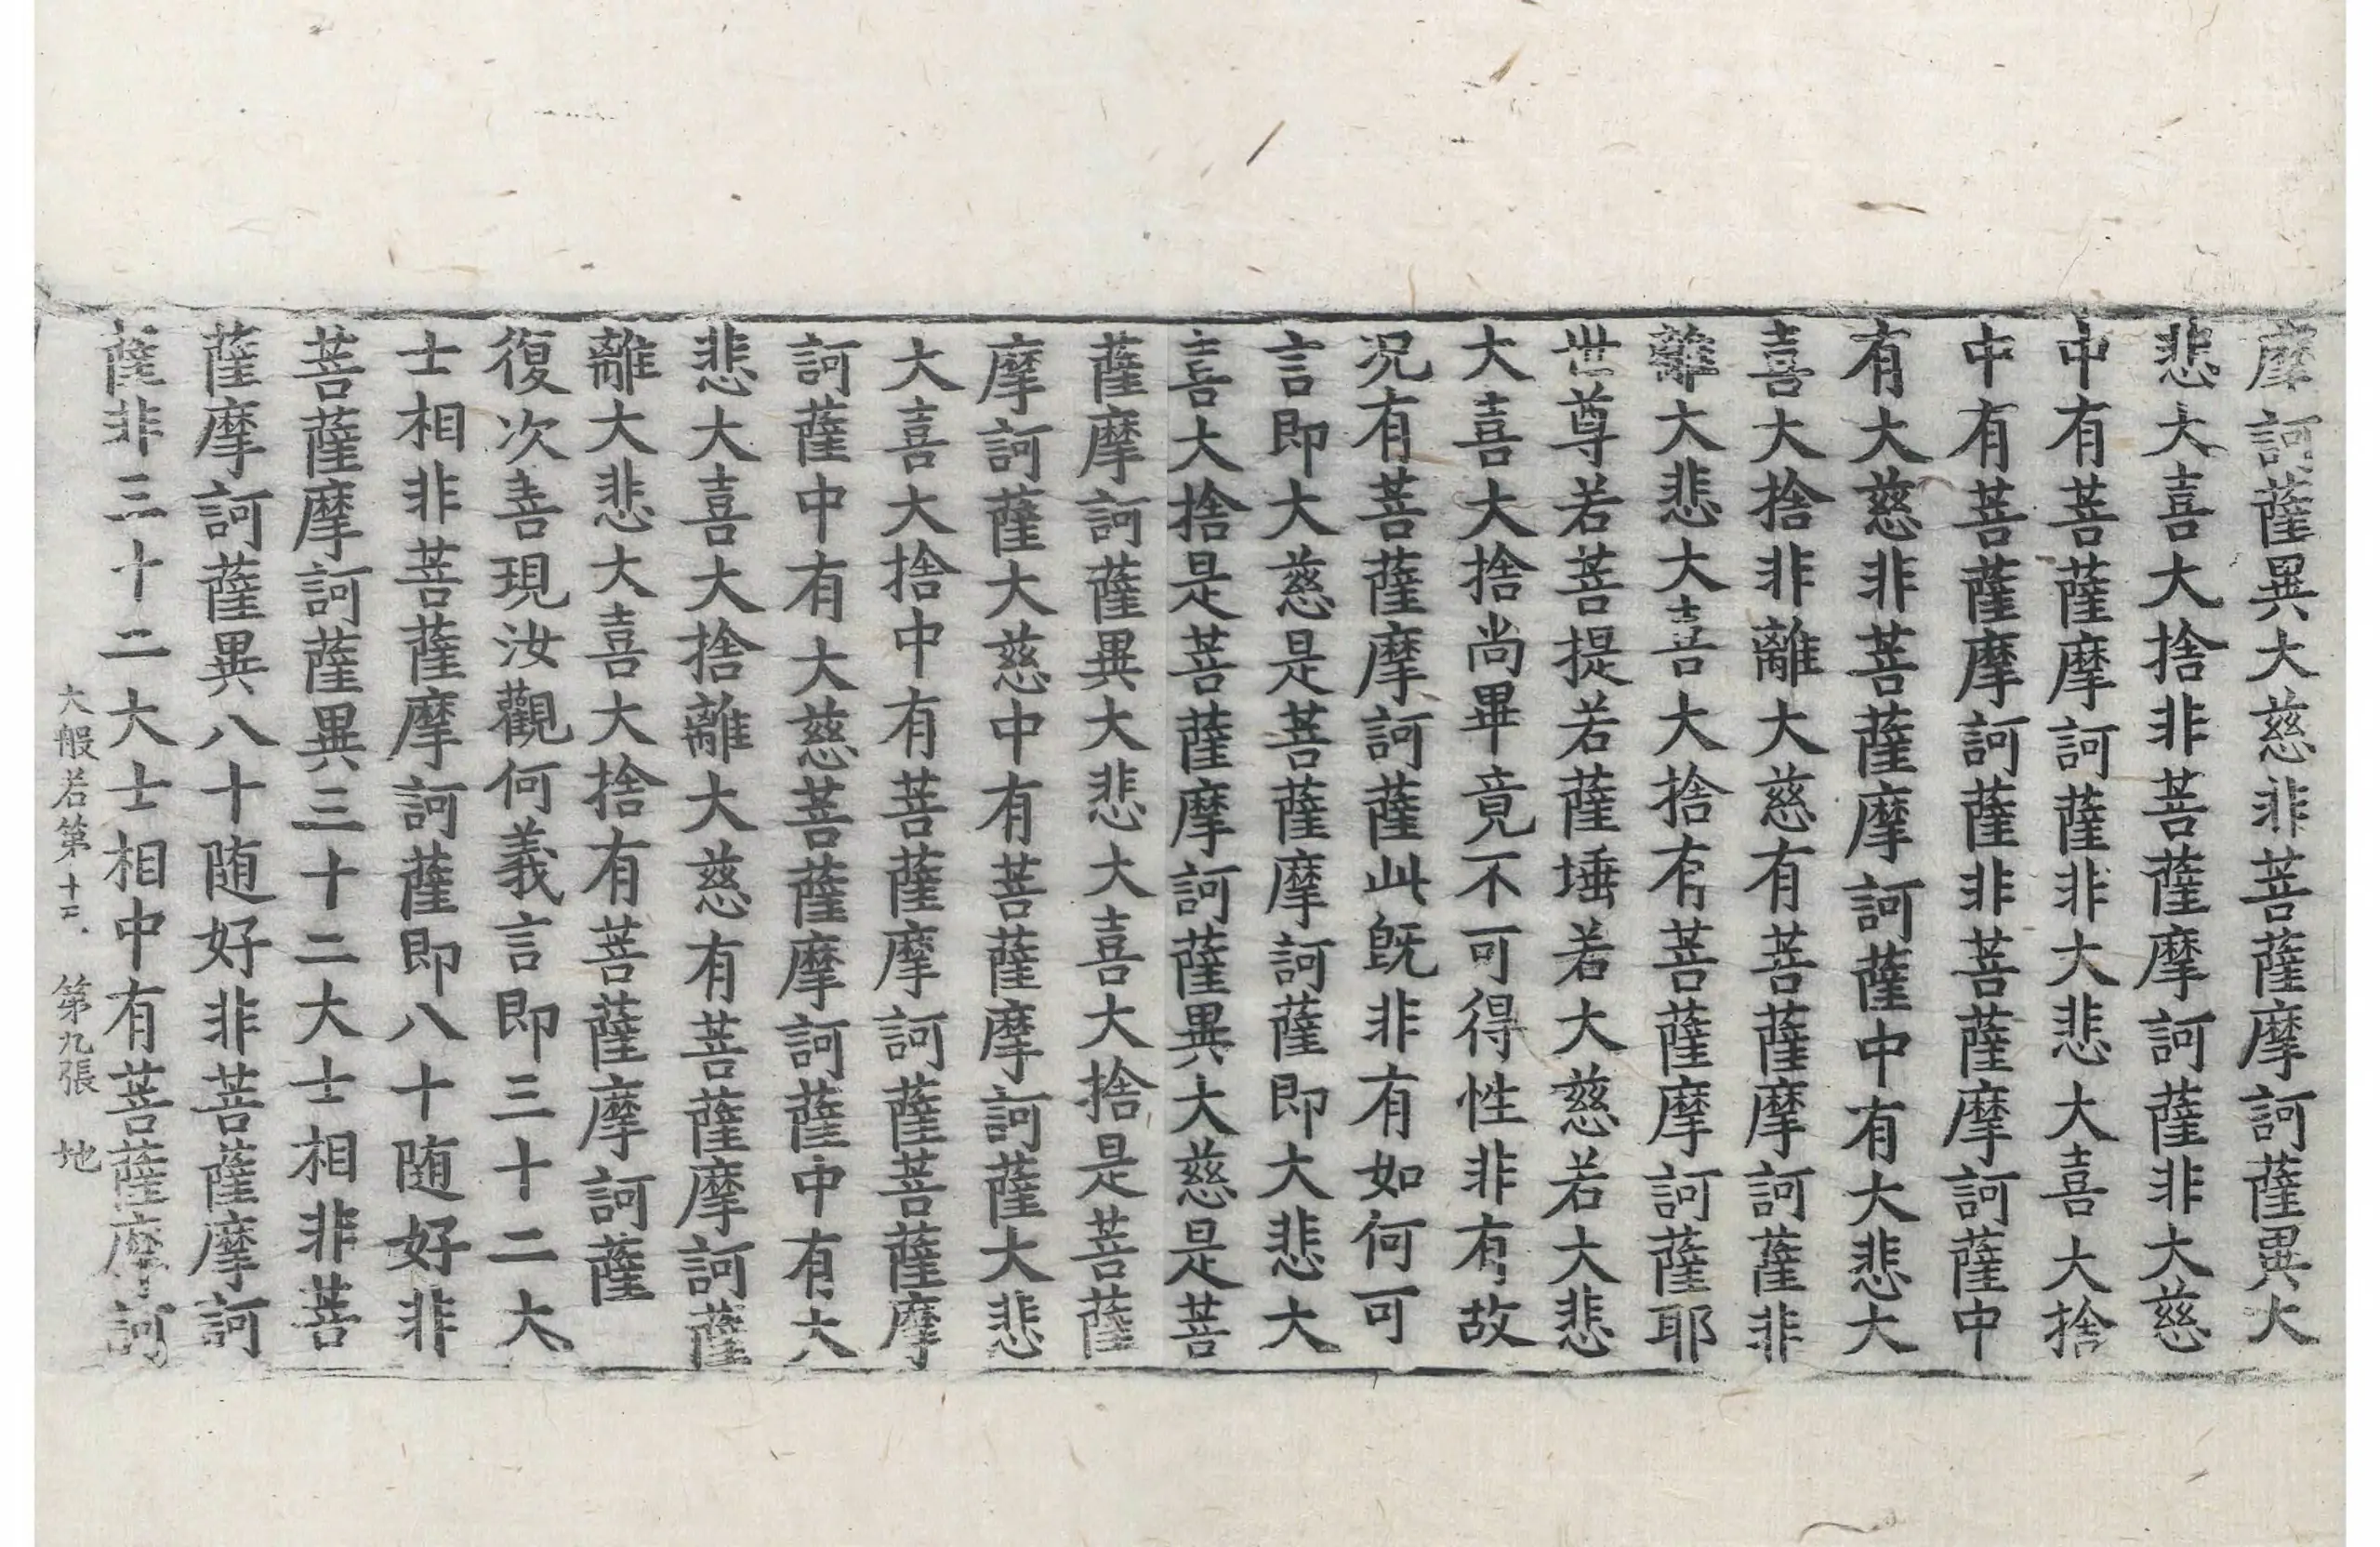 摩訶薩異大慈非菩薩摩訶薩異大
悲大喜大捨非菩薩摩訶薩非大慈
中有菩薩摩訶薩非大悲大喜大捨
中有菩薩摩訶薩非菩薩摩訶薩中
有大慈非菩薩摩訶薩中有大悲大
喜大捨非離大慈有菩薩摩訶薩非
離大悲大喜大捨有菩薩摩訶薩耶
世尊若菩提若薩埵若大慈若大悲
大喜大捨尚畢竟不可得性非有故
況有菩薩摩訶薩此旣非有如何可
言即大慈是菩薩摩訶薩即大悲大
喜大捨是菩薩摩訶薩異大慈是菩
薩摩訶薩異大悲大喜大捨是菩薩
摩訶薩大慈中有菩薩摩訶薩大悲
大喜大捨中有菩薩摩訶薩菩薩摩
訶薩中有大慈菩薩摩訶薩中有大
悲大喜大捨離大慈有菩薩摩訶薩
離大悲大喜大捨有菩薩摩訶薩
復次善現汝觀何義言即三十二大
士相非菩薩摩訶薩即八十随好非
菩薩摩訶薩異三十二大士相非菩
薩摩訶薩異八十随好非菩薩摩訶
薩非三十二大士相中有菩薩摩訶
大般若第十三 第九張 地